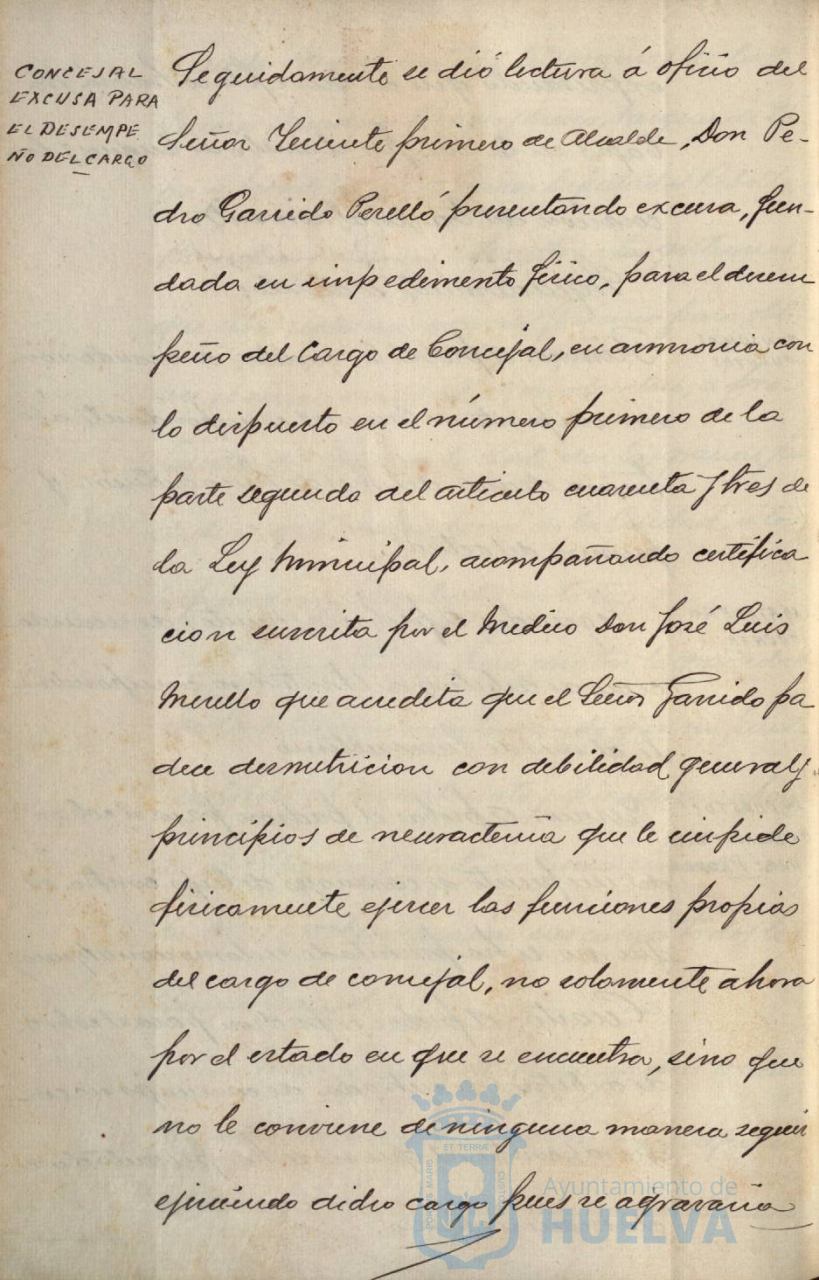 CONCEJAL
EXCUSA PARA
EL DESEMPE
ÑO DEL CARGO
Seguidamente se dió lectura á oficio del
Señor Teniente primero de Alcalde, Don Pe-
dro Garrido Perelló presentando excusa, fun-
dada en impedimento físico, para el desem
peño del Cargo de Concejal, en armonia con
lo dispuesto en el número primero de la
parte segunda del articulo cuarenta y tres de
la Ley Municipal, acompañando certifica
cion suscrita por el Medico Don José Luis
que acredita que el Señor Garrido pa
dece desnutricion con debilidad general y
principios de neurastenia que le impide
fisicamente ejercer las funciones propias
del cargo de concejal, no solamente ahora
por el estado en que se encuentra, sino que
no le conviene de ninguna manera seguir
ejerciendo dicho cargo pues se agravaria
Ayuntamiento de
HUELVA